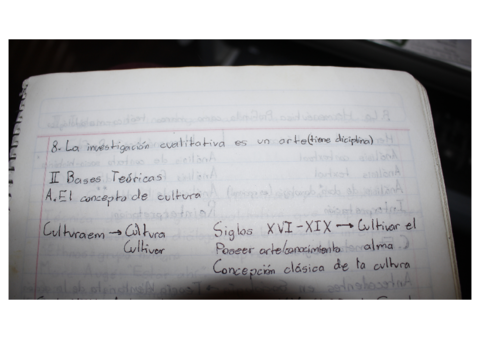 8.- La investigación cualitativa es un arte (tiene diciplina)
II Bases Teóricas
A. El concepto de cultura
Culturaem → Cultura Siglos XVI-XIX → Cultivar el
Cultivar Poseer arte/conocimiento alma
Concepción clásica de la cultura